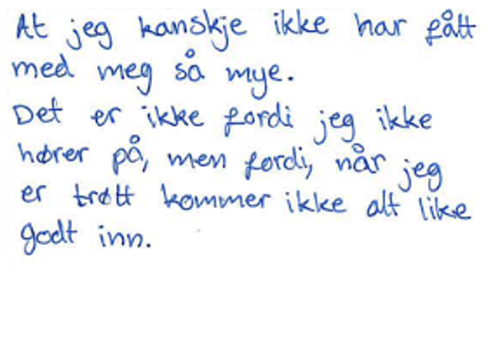 At jeg kanskje ikke har fått
med meg så mye.
Det er ikke fordi jeg ikke
hører på, men fordi, når jeg
er trøtt kommer ikke alt like
godt inn.